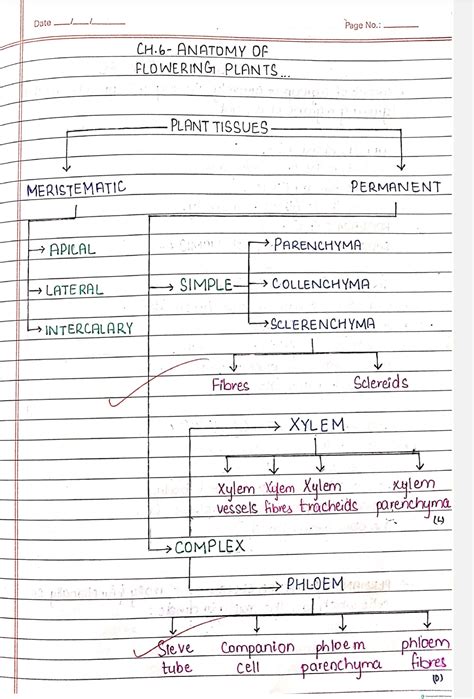 Date
Page No.:
CH.6- ANATOMY OF
FLOWERING PLANTS...
PLANT TISSUES
MERISTEMATIC PERMANENT
APICAL PARENCHYMA
LATERAL SIMPLE COLLENCHYMA
INTERCALARY SCLERENCHYMA
Fibres Sclereids
XYLEM
Xylem Xylem Xylem xylem
vessels fibres tracheids parenchyma
(L)
COMPLEX
PHLOEM
Sieve Companion phloem phloem
tube cell parenchyma fibres
(D)